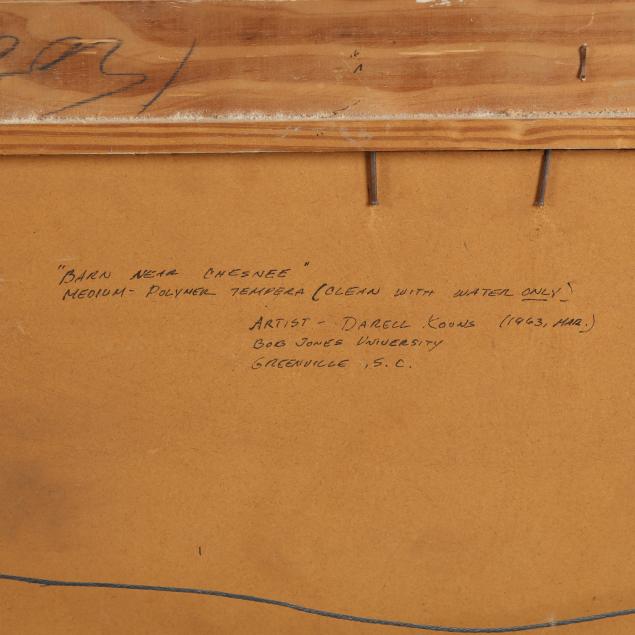 "BARN NEAR CHESNEE"
MEDIUM- POLYMER TEMPERA (CLEAN WITH WATER ONLY)
ARTIST - DARELL KOONS (1963, MAR.)
BOB JONES UNIVERSITY
GREENVILLE, S.C.